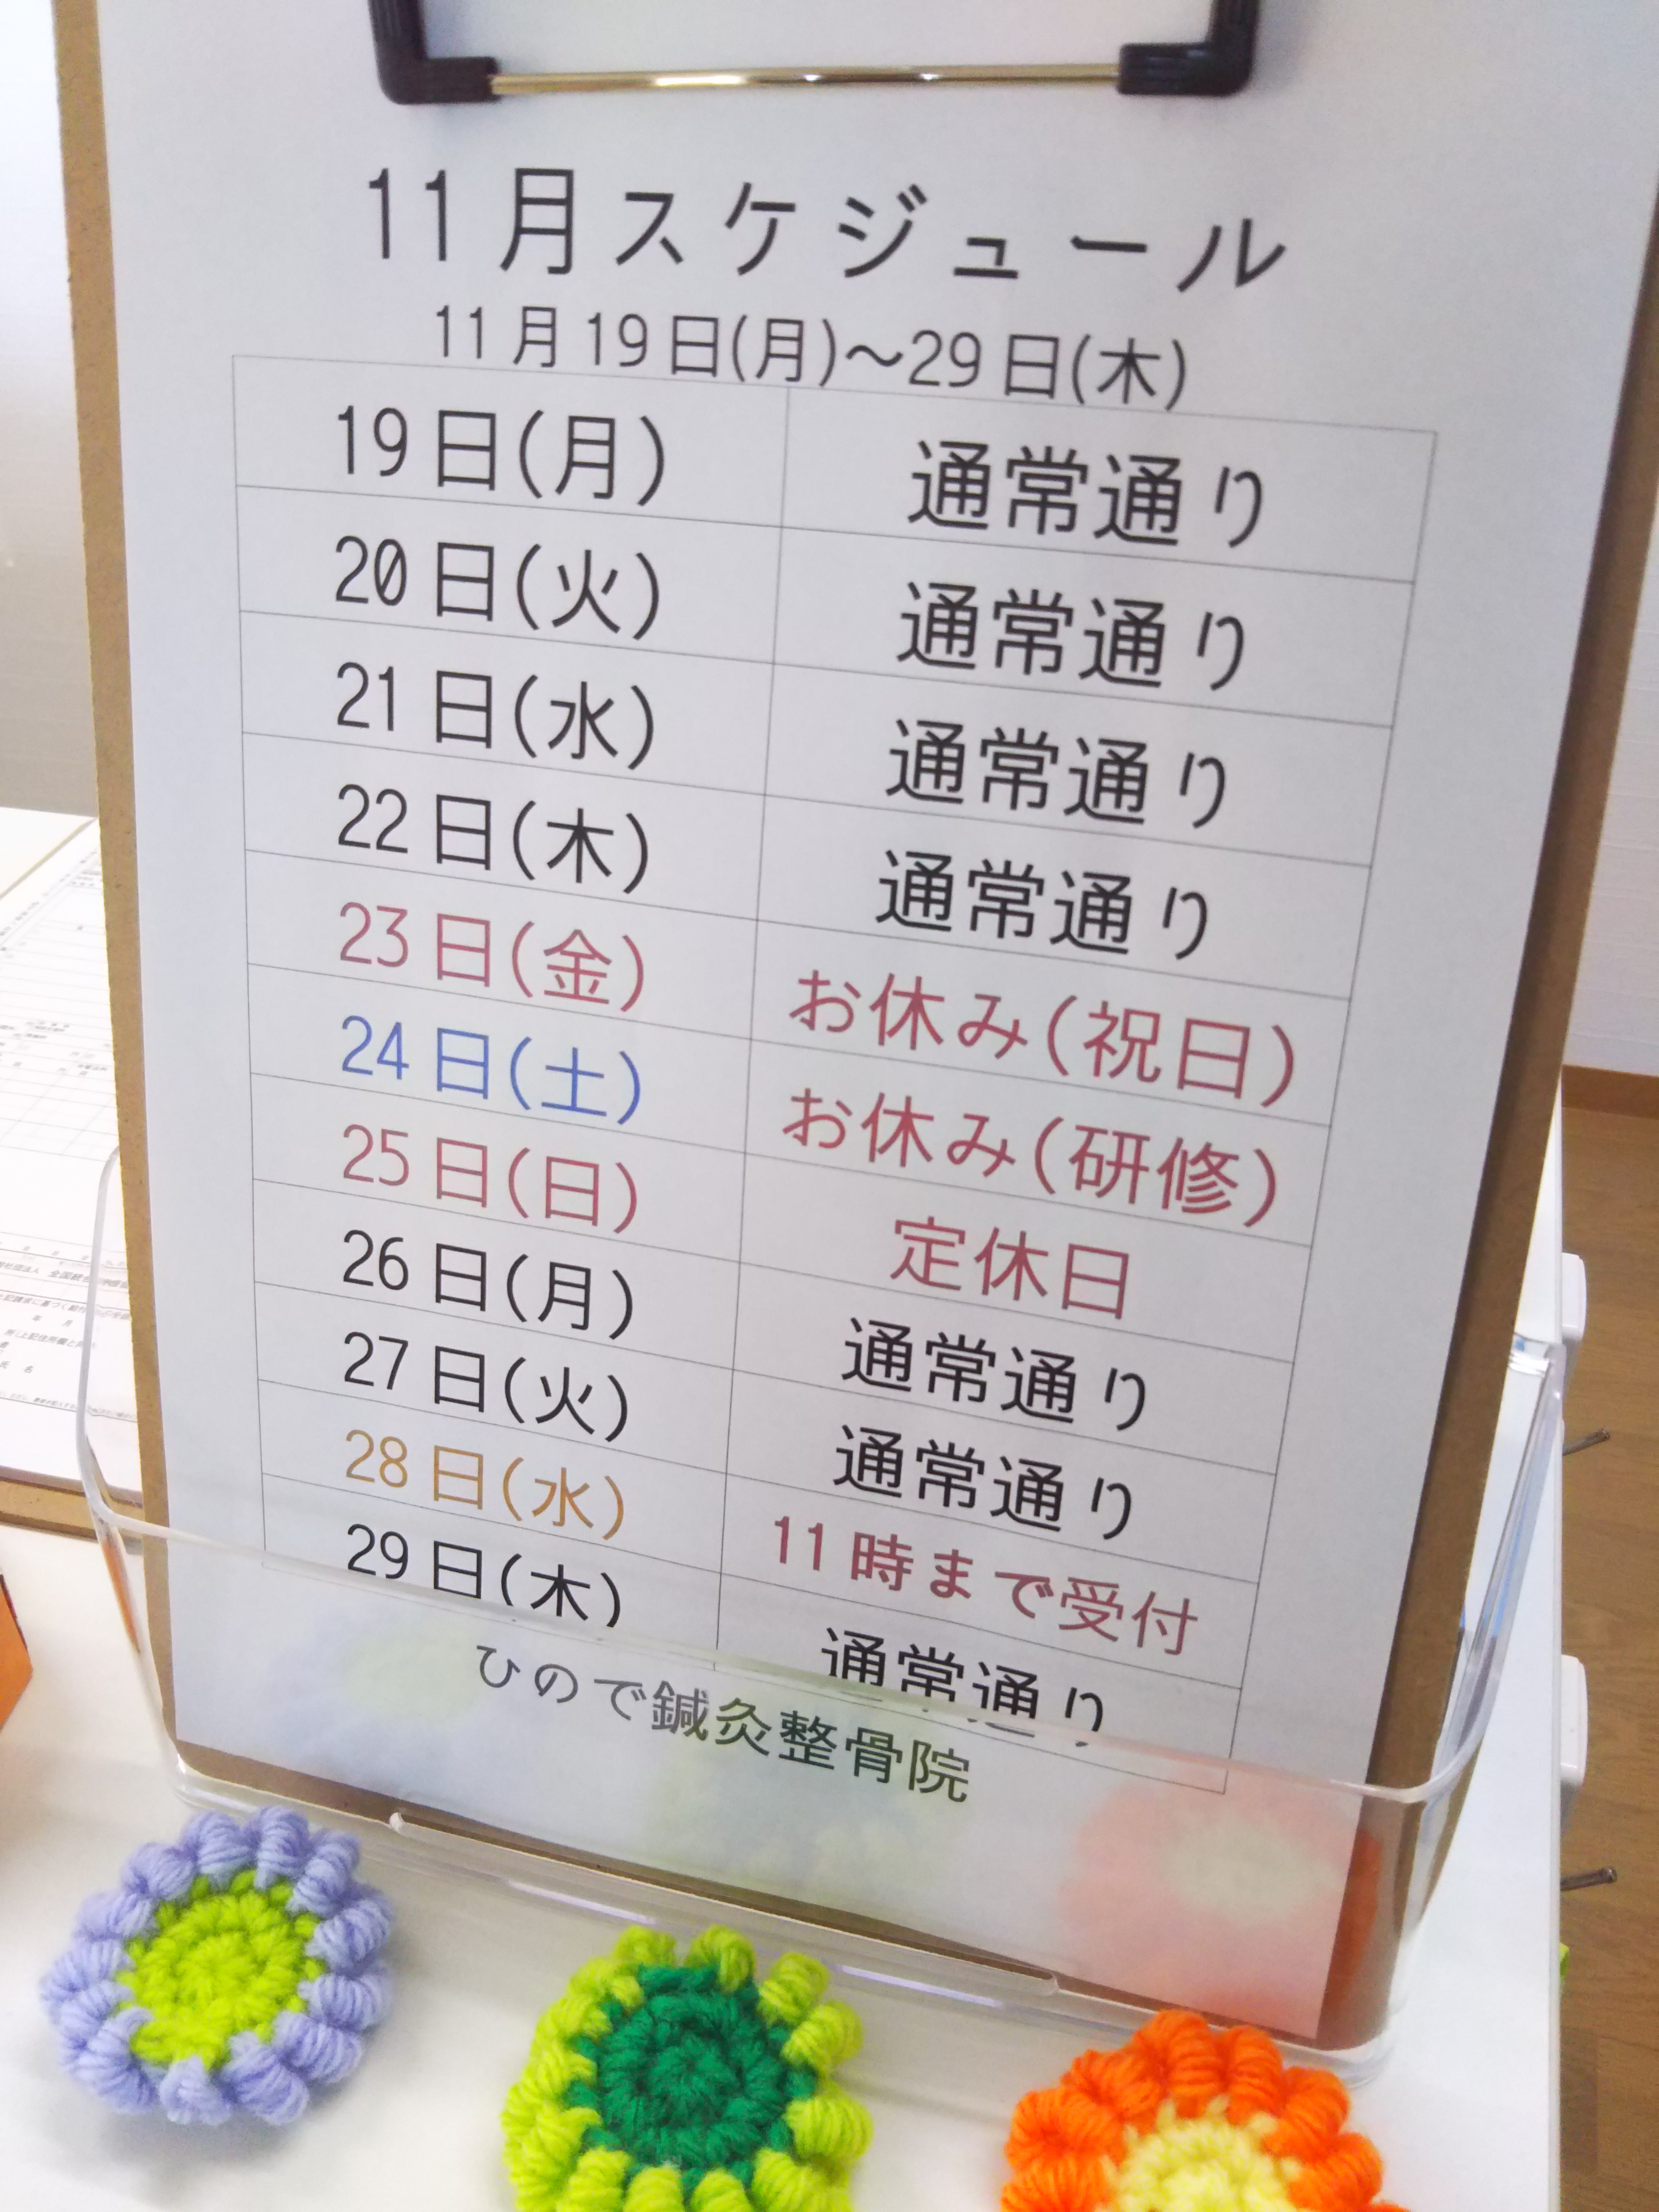 11月スケジュール
11月19日(月)〜29日(木)
19日(月) 通常通り
20日(火) 通常通り
21日(水) 通常通り
22日(木) 通常通り
23日(金) お休み(祝日)
24日(土) お休み(研修)
25日(日) 定休日
26日(月) 通常通り
27日(火) 通常通り
28日(水) 11時まで受付
29日(木) 通常通り
ひので鍼灸整骨院